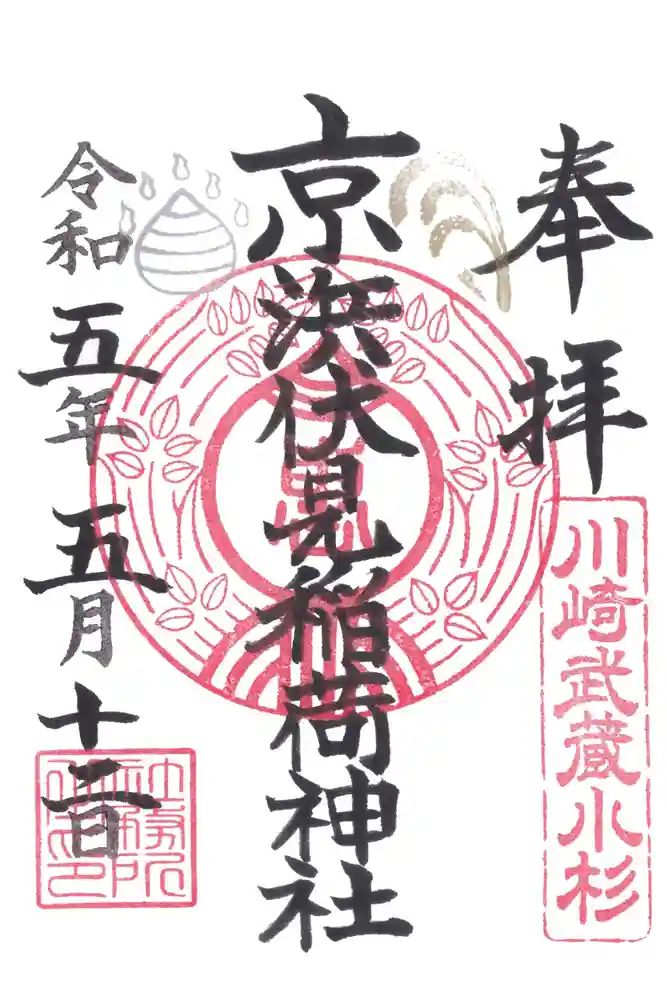 奉拝
川崎武蔵小杉
京浜伏見稲荷神社
令和五年五月十二日